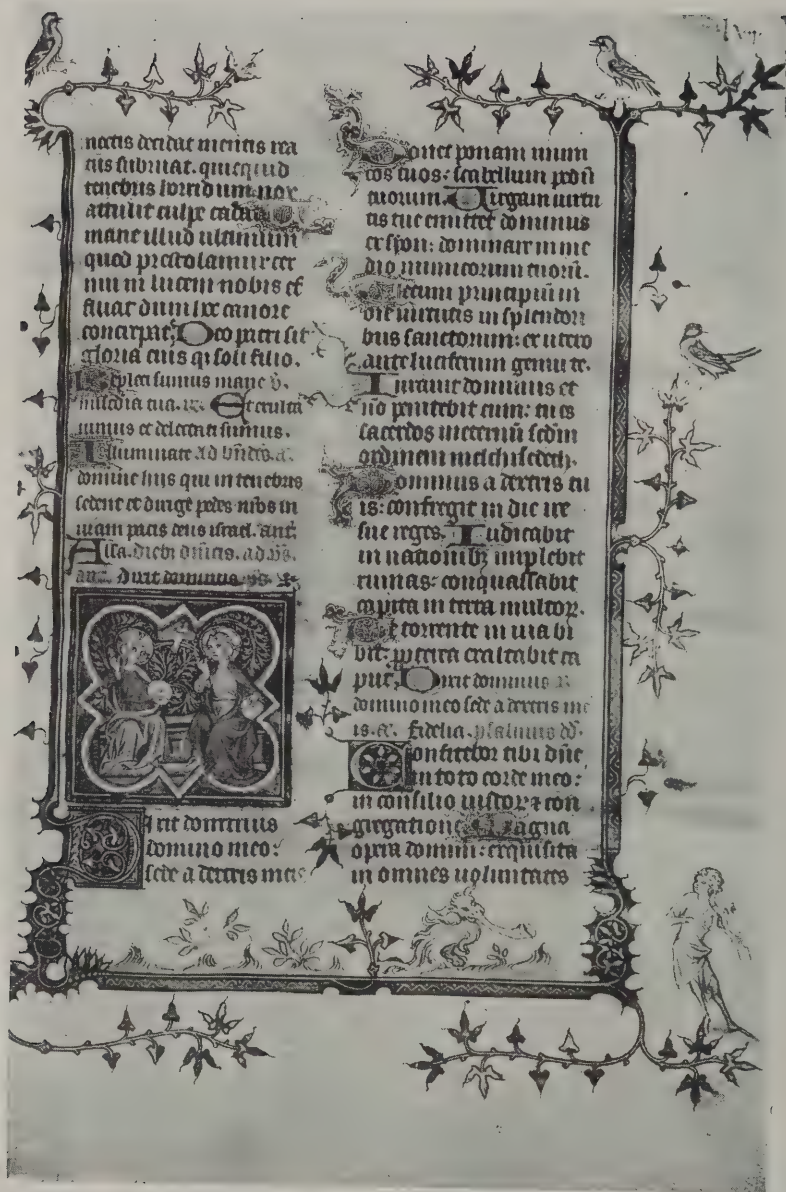 noctis decidat mentis rea
tus subruat. quicquid
tenebris horridum nox
attulit culpe cadat
mane illud ultimum
quod prestolamur cer
nui in lucem nobis ef
fluat dum hec canore
concrepat. Deo patri sit
gloria eiusq; soli filio.
Repleti sumus mane v.
misedia tua. R. Et exulta
uimus et delectati sumus.
Illuminare ad bndcs. a.
domine hiis qui in tenebris
sedent et dirige pedes nrõs in
uiam pacis deus israel. ant.
dixit dominus. ps.
Dixit dominus
domino meo:
sede a dextris meis
Donec ponam inimi
cos tuos: scabellum pedũ
tuorum. Virgam uirtu
tis tue emittet dominus
ex syon: dominare in me
dio inimicorum tuorũ.
Tecum principiũ in
die uirtutis in splendori
bus sanctorum: ex utero
ante luciferum genui te.
Iurauit dominus et
nõ penitebit eum: tu es
sacerdos ineternũ scdm
ordinem melchisedech.
Dominus a dextris tu
is: confregit in die ire
sue reges. Iudicabit
in nationibz implebit
ruinas: conquassabit
capita in terra multoꝝ.
De torrente in uia bi
bit: pptcrea exaltabit ca
put. Dixit dominus
domino meo sede a dextris me
is. Fidelia. psalmus dd.
Confitebor tibi dñe
in toto corde meo:
in consilio iustoꝝ ⁊ con
gregatione Magna
opera domini: exquisita
in omnes uoluntates